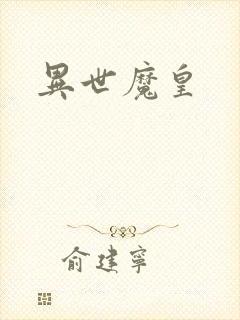 異世魔皇
俞建寧